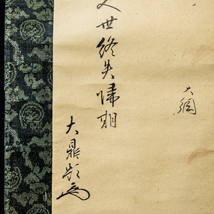 大綱
世終失帰期
大鼎題